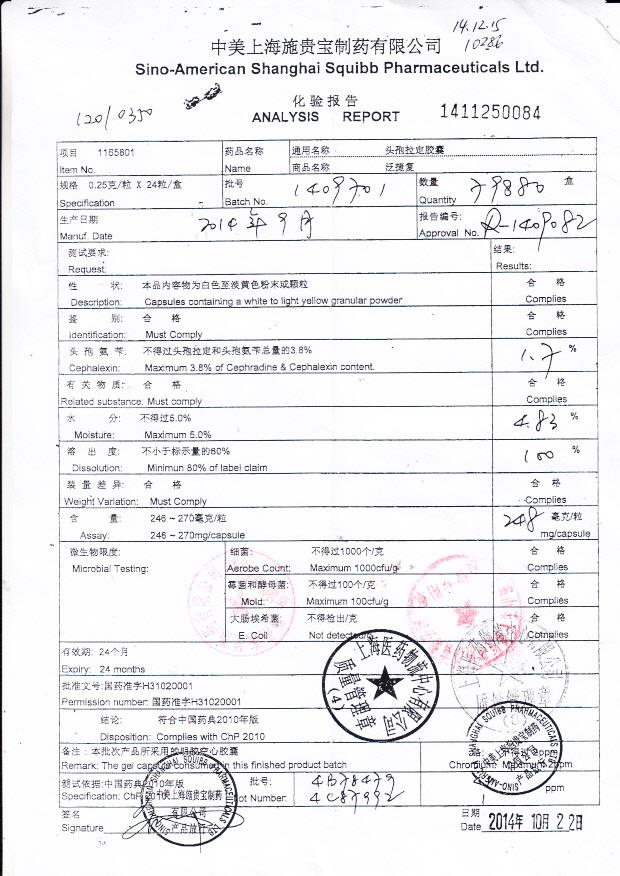 14.12.15
10286
中美上海施贵宝制药有限公司
Sino-American Shanghai Squibb Pharmaceuticals Ltd.
化验报告
120/0350
ANALYSIS REPORT
1411250084
项目 1165801 药品名称 通用名称 头孢拉定胶囊
Item No. Name 商品名称 泛捷复
规格 0.25克/粒 X 24粒/盒 批号 1409701 数量 79880 盒
Specification Batch No. Quantity
生产日期 2014年9月 报告编号:
Manuf. Date Approval No. R-1409082
测试要求: 结果:
Request: Results:
性 状: 本品内容物为白色至淡黄色粉末或颗粒 合 格
Description: Capsules containing a white to light yellow granular powder Complies
鉴 别: 合 格 合 格
Identification: Must Comply Complies
头孢氨苄: 不得过头孢拉定和头孢氨苄总量的3.8% 1.7 %
Cephalexin: Maximum 3.8% of Cephradine & Cephalexin content.
有关物质: 合 格 合 格
Related substance: Must comply Complies
水 分: 不得过5.0% 4.83 %
Moisture: Maximum 5.0%
溶出度: 不小于标示量的80% 100 %
Dissolution: Minimun 80% of label claim
装量差异: 合 格 合 格
Weight Variation: Must Comply Complies
含 量: 246 ~ 270毫克/粒 248 毫克/粒
Assay: 246 ~ 270mg/capsule mg/capsule
微生物限度: 细菌: 不得过1000个/克 合 格
Microbial Testing: Aerobe Count: Maximum 1000cfu/g Complies
霉菌和酵母菌: 不得过100个/克 合 格
Mold: Maximum 100cfu/g Complies
大肠埃希菌: 不得检出/克 合 格
E. Coli Not detected/g Complies
有效期: 24个月
Expiry: 24 months
上海医药物流中心有限公司
质量管理章
(4)
批准文号:国药准字H31020001
Permission number: 国药准字H31020001
结论: 符合中国药典2010年版
Disposition: Complies with ChP 2010
备注:本批次产品所采用的明胶空心胶囊 ppm
Remark: The gel capsule consumed in this finished product batch Chromium: Maximum 2ppm
测试依据:中国药典2010年版 批号: 4B78479
Specification: ChP 2010 Lot Number: 4C87992 ppm
中美上海施贵宝制药
有限公司
产品放行
签名
Signature
日期
Date 2014年 10月 22日